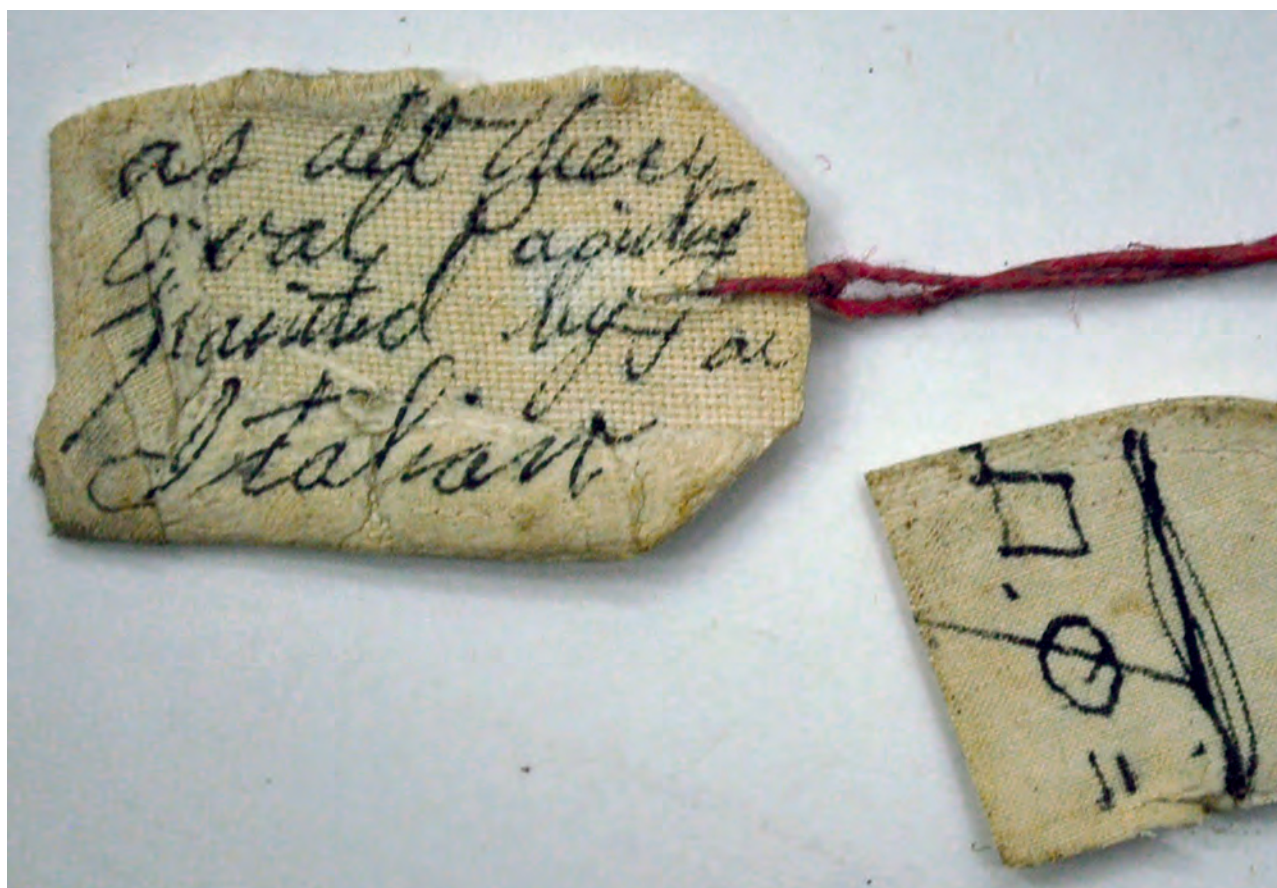 as all Very
oval Paintings
Painted by an
Italian